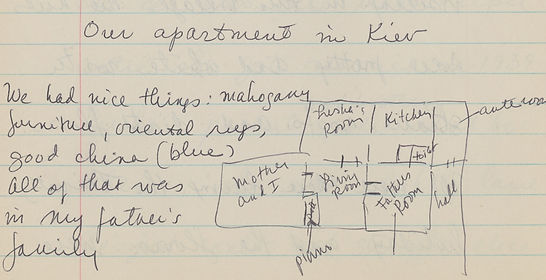 Our apartment in Kiev
We had nice things: mahogany
furniture, oriental rugs,
good china (blue)
all of that was
in my father's
family
Room
Kitchen
anteroom
toilet
Mother
and I
living
Room
Father's
Room
hall
piano